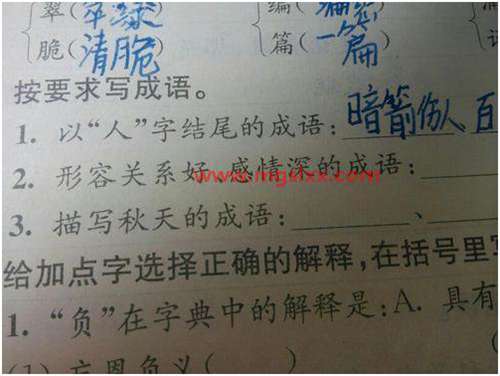 翠(翠绿
脆(清脆)
编(
篇(一篇)
按要求写成语。
1. 以“人”字结尾的成语:暗箭伤人 百
2. 形容关系好、感情深的成语:
www.mgslxx.com
3. 描写秋天的成语:、
给加点字选择正确的解释,在括号里
1. “负”在字典中的解释是:A. 具有
(1) 忘恩负义( )